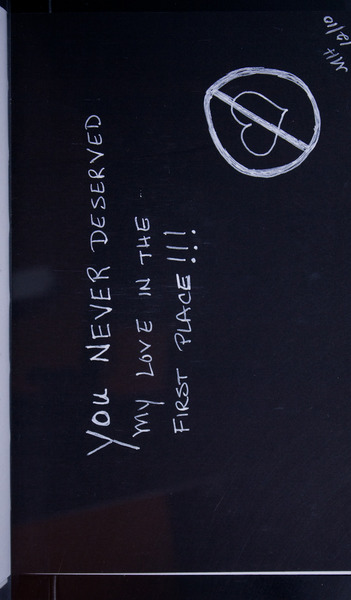 YOU NEVER DESERVED
MY LOVE IN THE
FIRST PLACE!!!
MH
12/10